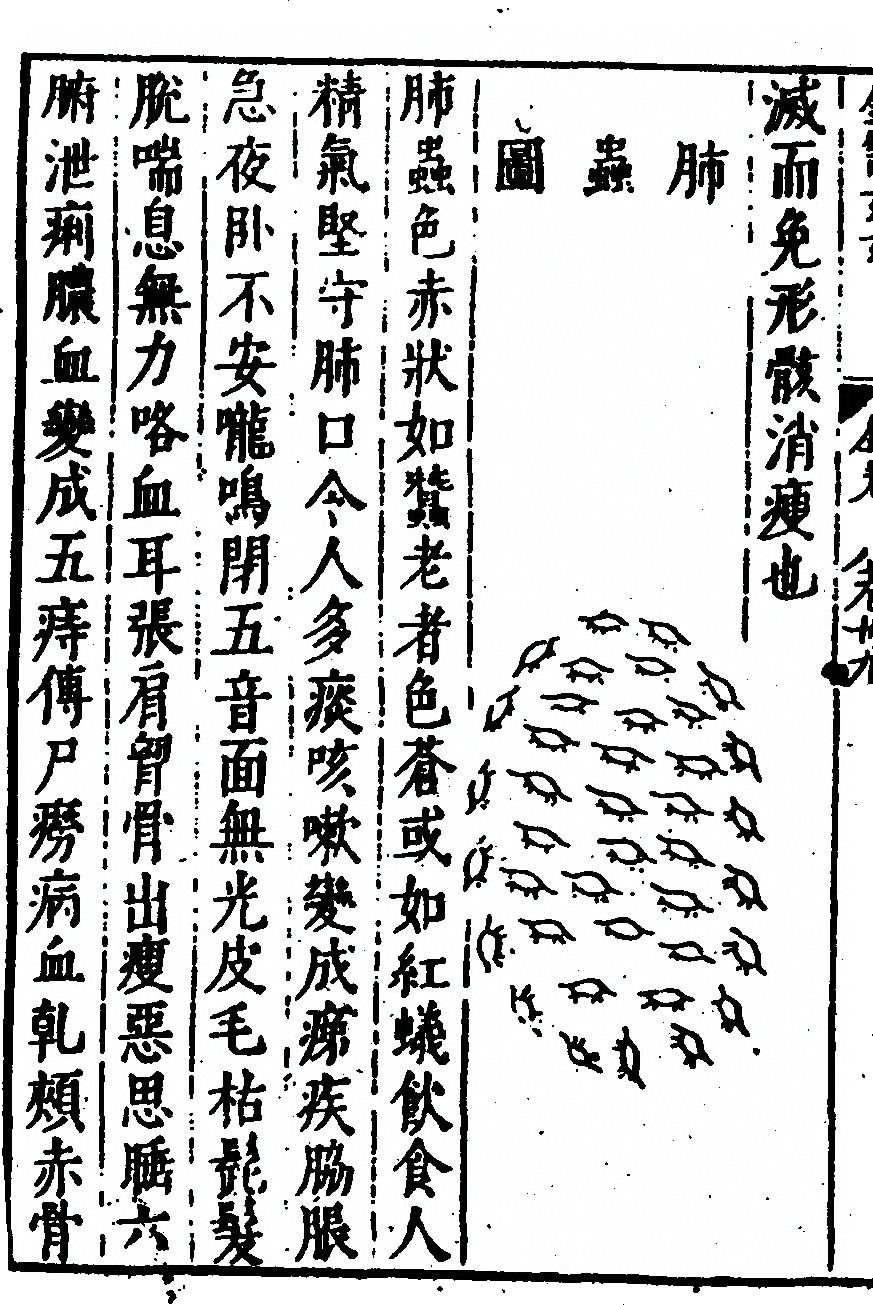 滅而免形骸消瘦也
肺蟲圖
肺蟲色赤狀如蠶老者色蒼或如紅蟻飲食人
精氣堅守肺口令人多痰咳嗽變成癆疾脇脹
急夜卧不安嚨鳴閉五音面無光皮毛枯髭髮
脫喘息無力咯血耳張肩胷骨出瘦惡思睡六
腑泄痢膿血變成五痔傳尸癆病血乹頰赤骨